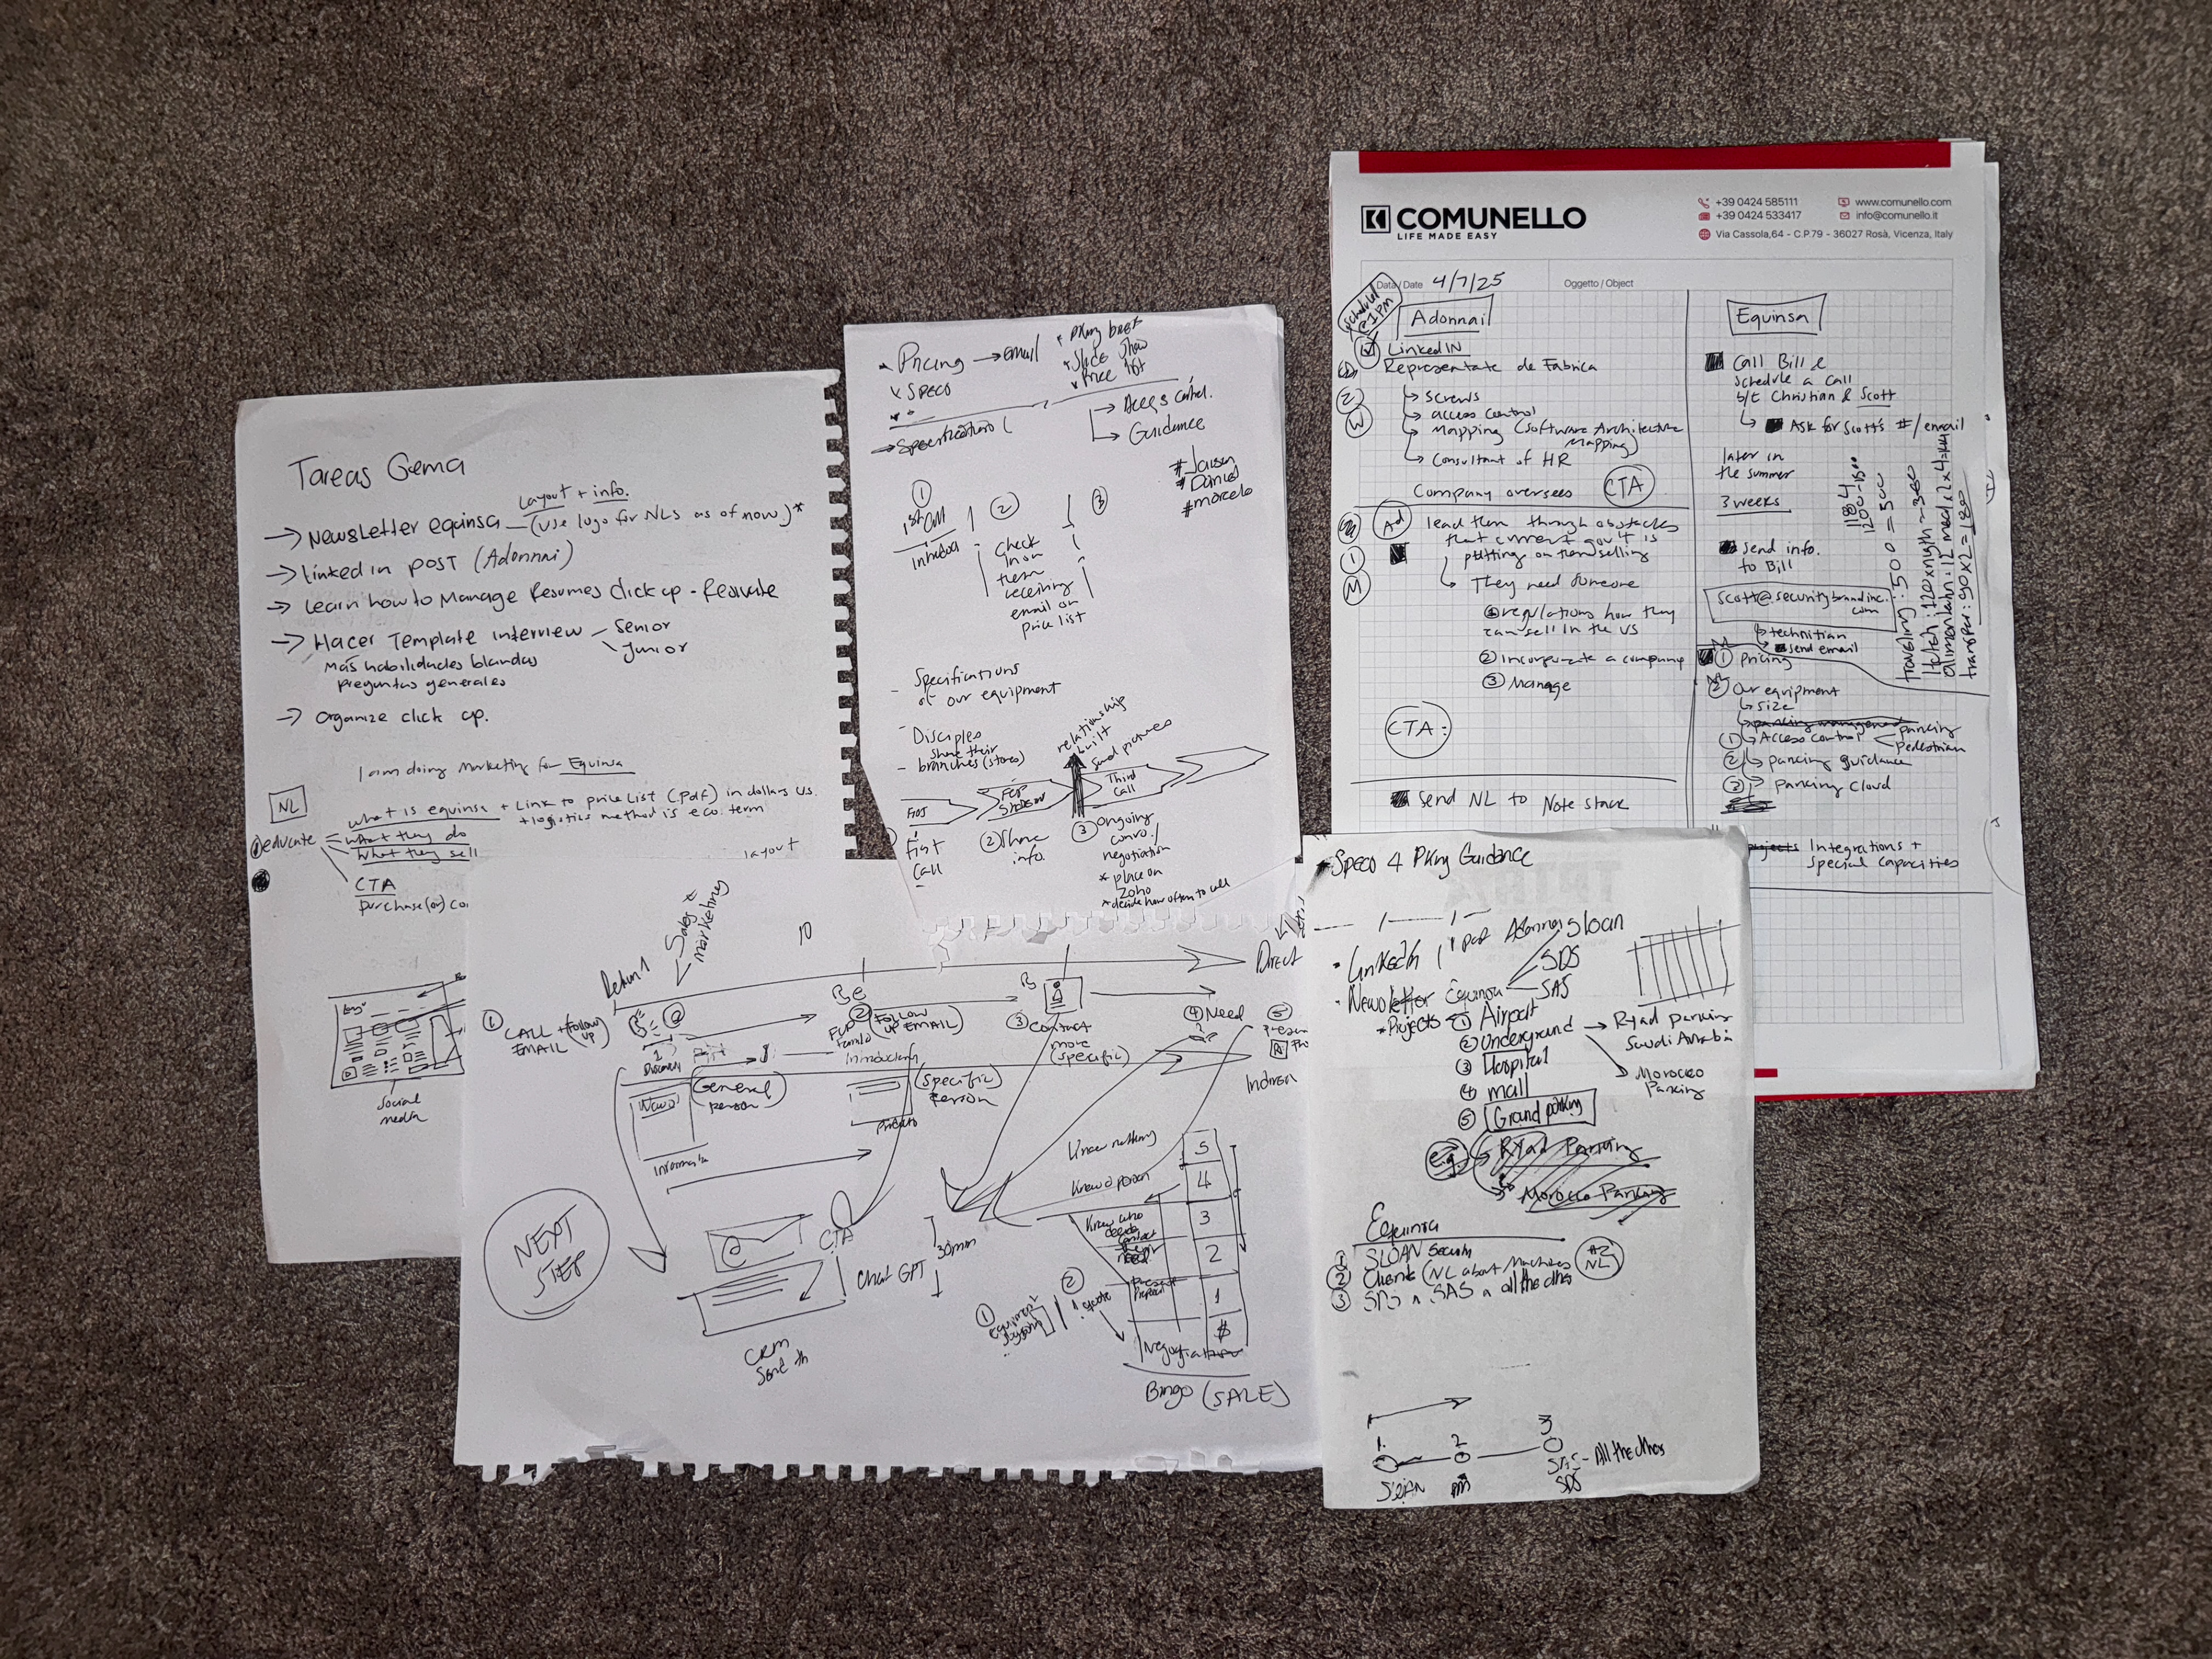 Tareas Gema
Layout + info.
→ Newsletter equinsa — (use logo for NLs as of now)*
→ Linked in post (Adonnai)
→ Learn how to Manage Resumes Click up -
→ Hacer Template interview
Senior
Junior
Más habilidades blandas
preguntas generales
→ organize click up.
I am doing marketing for Equinsa
NL
① educate
what is equinsa + Link to price List (.pdf) in dollars US.
+ logistics method is eco. term
what they do
what they sell
CTA
purchase (or)
layout
social
media
Pricing → email
Specs
Slide Show
Price list
→ Specification
→ Access control.
→ Guidance
# Daniel
# Marcelo
①
1st Call
②
Check
in on
them
receiving
email on
price list
③
- Specifications
of our equipment
- Disciples
share their
- branches (stores)
relationship
built
Send pictures
Third
Call
First
Call
② Share
info.
③ ongoing
convo./
negotiation
* place on
Zoho
* decide how often to call
COMUNELLO
LIFE MADE EASY
+39 0424 585111
+39 0424 533417
www.comunello.com
info@comunello.it
Via Cassola,64 - C.P.79 - 36027 Rosà, Vicenza, Italy
Data / Date 4/7/25
Oggetto / Object
scheduled
@1PM
Adonnai
LinkedIN
Representate de Fabrica
↳ screws
↳ access control
↳ Mapping (Software Architecture
Mapping)
↳ Consultant of HR
Company oversees CTA
Ad
lead them through obstacles
that current gov't is
putting on them selling
↳ They need someone
① regulations how they
can sell in the US
② incorporate a company
③ Manage
CTA:
Send NL to Note stack
Equinsa
Call Bill &
schedule a call
b/t Christian & Scott
↳ Ask for Scott's #/email
later in
the summer
3 weeks
Send info.
to Bill
scott@securitybrandinc.
com
↳ technitian
send email
① pricing
② Our equipment
↳ size
parking management
① ↳ Access control
parking
pedestrian
② ↳ parking guidance
③ ↳ parking cloud
Integrations +
special capacities
1184
1200-1500
traveling: 500 = 500
Sales &
marketing
10
Direct
① CALL + Follow
up
EMAIL
② FOLLOW
UP EMAIL
③ Contact
more
(specific)
④ Need
⑤
(General
Person)
(Specific
Person)
NEXT
STEP
@
CTA
Chat GPT
30min
CRM
Knew nothing
Know a person
Know who
5
4
3
2
1
$
① equipment
②
quote
Bingo (SALE)
Specs 4 Pking Guidance
• LinkedIn
Sloan
• Newsletter Equinsa
SDS
SAS
* Projects
① Airport
② Underground
→ Ryad parking
Saudi Arabia
→ Morocco
Parking
③ Hospital
④ mall
⑤ Ground parking
e.g.
Ryad Parking
Morocco Parking
Equinsa
① SLOAN Security
② Clients (NL about Machines
#2
NL
③ SDS n SAS n all the others
1.
2
3
SLOAN
SAS - All the others
SDS